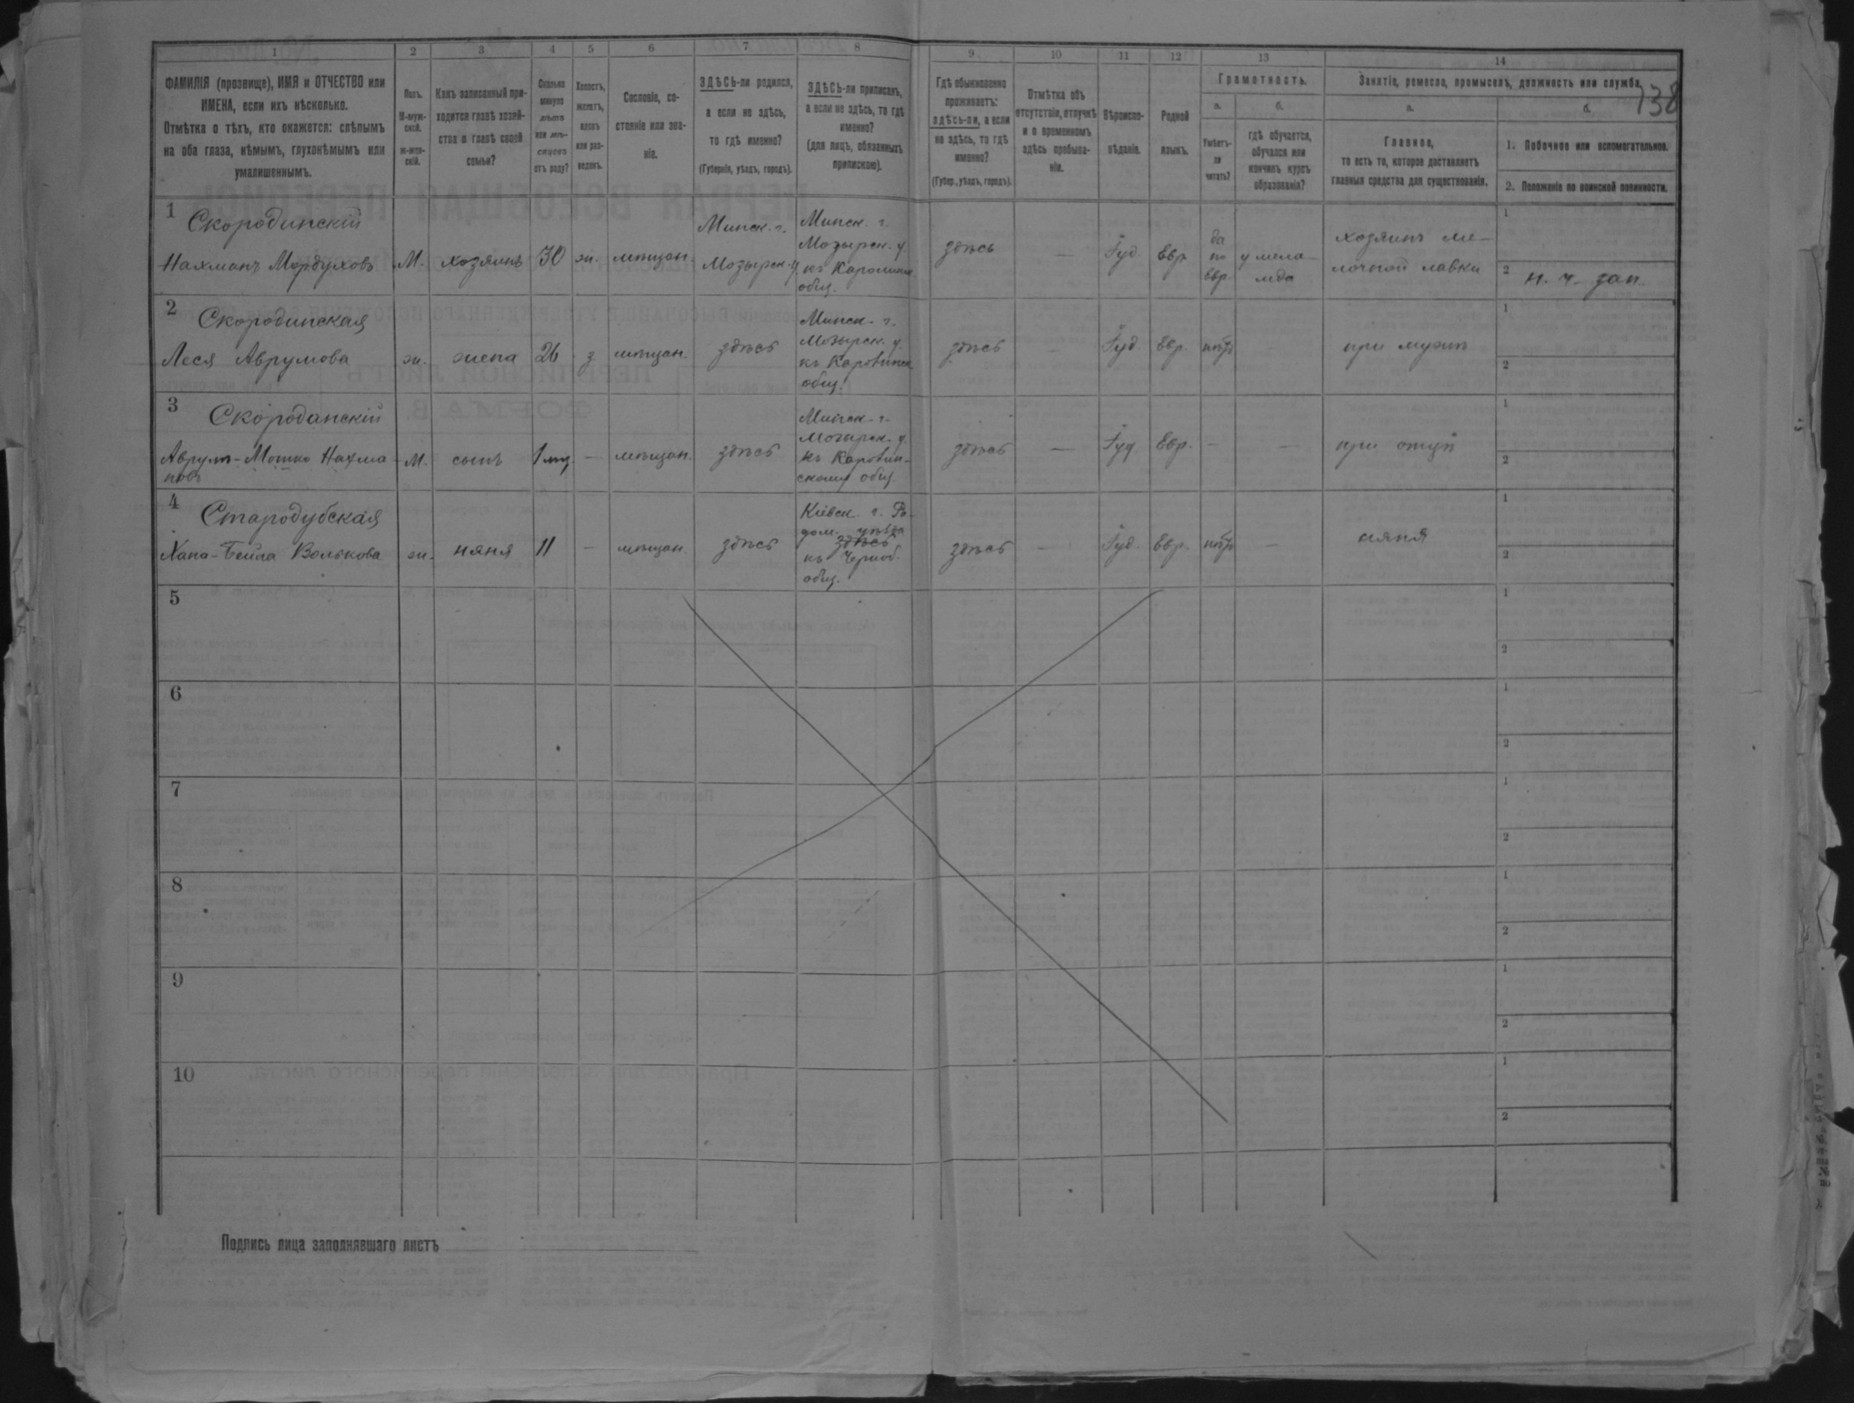 1 2 3 4 5 6 7 8 9 10 11 12 13 14
138
ФАМИЛІЯ (прозвище), ИМЯ и ОТЧЕСТВО или
ИМЕНА, если ихъ нѣсколько.
Отмѣтка о тѣхъ, кто окажется: слѣпымъ
на оба глаза, нѣмымъ, глухонѣмымъ или
умалишеннымъ.
Полъ.
М-муж-
ской.
Ж-жен-
скій.
Какъ записанный при-
ходится главѣ хозяй-
ства и главѣ своей
семьи?
Сколько
минуло
лѣтъ
или мѣ-
сяцевъ
отъ роду?
Холостъ,
женатъ,
вдовъ
или раз-
веденъ.
Сословіе, со-
стояніе или зва-
ніе.
ЗДѢСЬ-ли родился,
а если не здѣсь,
то гдѣ именно?
(Губернія, уѣздъ, городъ).
ЗДѢСЬ-ли приписанъ,
а если не здѣсь, то гдѣ
именно?
(для лицъ, обязанныхъ
припискою).
Гдѣ обыкновенно
проживаетъ:
здѣсь-ли, а если
не здѣсь, то гдѣ
именно?
(Губер., уѣздъ, городъ).
Отмѣтка объ
отсутствіи, отлучкѣ
и о временномъ
здѣсь пребыва-
ніи.
Вѣроиспо-
вѣданіе.
Родной
языкъ.
Грамотность.
а. б.
Умѣетъ-
ли
читать?
гдѣ обучается,
обучался или
кончилъ курсъ
образованія?
Занятіе, ремесло, промыселъ, должность или служба.
а. б.
Главное,
то есть то, которое доставляетъ
главныя средства для существованія.
1. Побочное или вспомогательное.
2. Положеніе по воинской повинности.
1
Скородинскій
Нахманъ Мордуховъ
М.
хозяинъ
30
ж.
мѣщан.
Минск. г.
Мозырск. у
Минск. г.
Мозырск. у
къ
общ.
здѣсь
—
Іуд
Евр
да
по
евр.
у мела-
мда
хозяинъ ме-
лочной лавки
1
2 н. ч. зап.
2
Скородинская
Леся Аврумова
ж.
жена
26
з
мѣщан.
здѣсь
Минск. г.
Мозырск. у.
къ
общ.
здѣсь
—
Іуд
Евр.
нѣтъ
при мужѣ
1
2
3
Скороданскій
Аврум-Мотко Нахма-
новъ
М.
сынъ
1
—
мѣщан.
здѣсь
Минск. г.
Мозырск. у.
къ Каровин-
скому общ.
здѣсь
—
Іуд.
Евр.
—
—
при отцѣ
1
2
4
Стародубская
Хана-Бейла Волькова
ж.
няня
11
—
мѣщан.
здѣсь
Кіевск. г. Ра-
дом. уѣзда
здѣсь
къ Черноб.
общ.
здѣсь
—
Іуд.
Евр.
нѣтъ
—
няня
1
2
5
1
2
6
1
2
7
1
2
8
1
2
9
1
2
10
1
2
Подпись лица заполнявшаго листъ